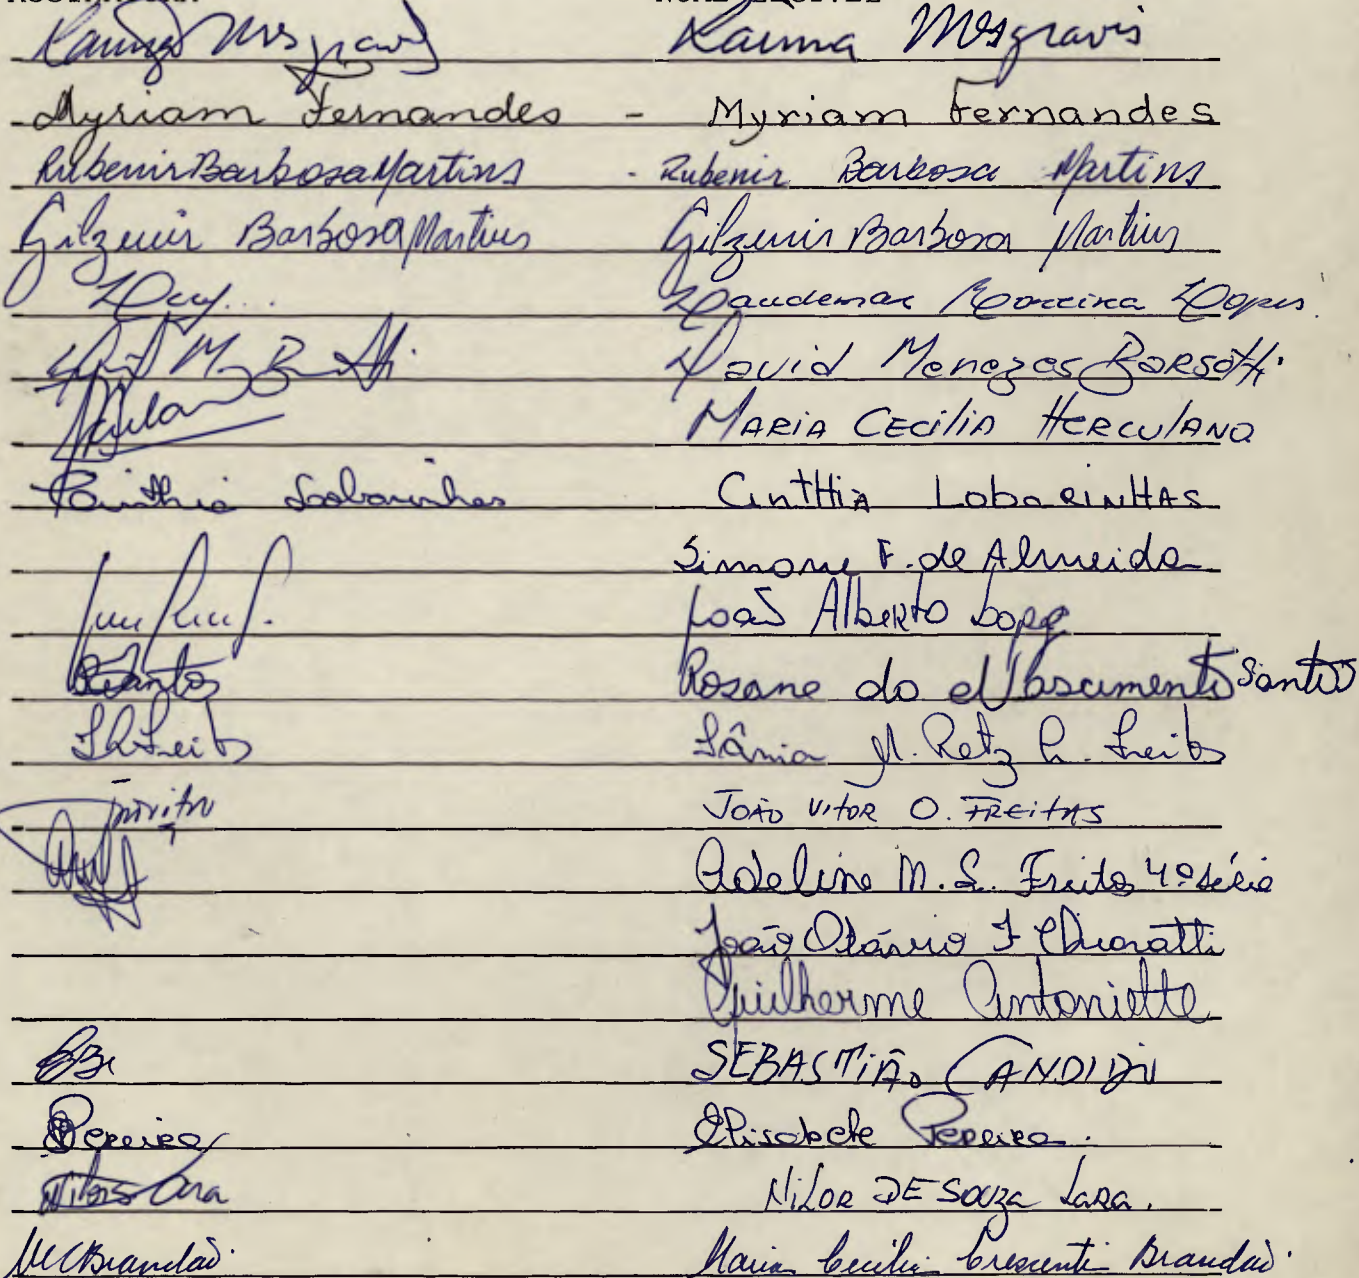 Karina Mesgravis
Myriam Fernandes - Myriam Fernandes
Rubenir Barbosa Martins - Rubenir Barbosa Martins
Gilzenir Barbosa Martins Gilzenir Barbosa Martins
Moreira Lopes
David Menezes Borsotti
MARIA CECILIA HERCULANO
Cinthia Lobarinhas CintHia LobaRinHAS
Simone F. de Almeida
João Alberto Lopes
Santos Rosane do Nascimento Santos
Tânia M. Retz
JOÃO VITOR O. FREITAS
Adeline M. S. Freitas 4ª série
João Otávio F
Guilherme Antoniette
SEBASTIÃO CANDIDO
Pereira Elisabete Pereira.
NiLOR DE Souza Lara.
MCBrandão Maria Cecilia Crescenti Brandão